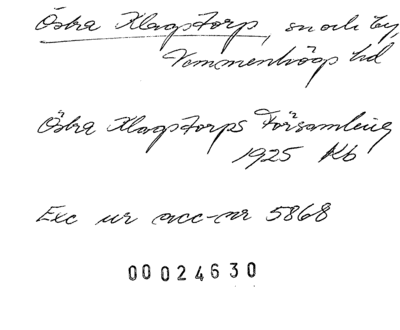 Östra Klagstorp, sn och by,
Vemmenhögs hd
Östra Klagstorps Församling
1925 Kb
Exc ur acc-nr 5868
00024630